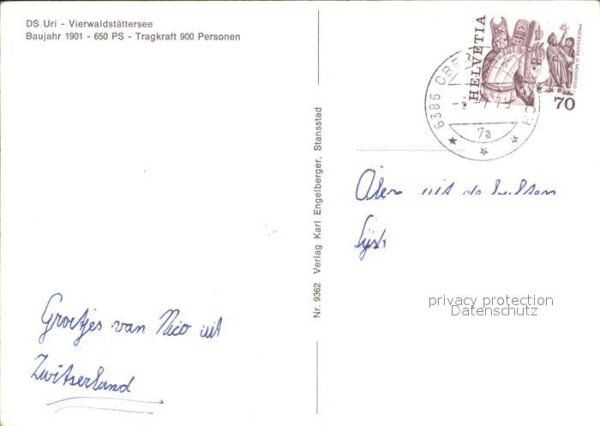 DS Uri - Vierwaldstättersee
Baujahr 1901 - 650 PS - Tragkraft 900 Personen
HELVETIA
70
6386
7a
Nr. 9362 Verlag Karl Engelberger, Stansstad
privacy protection
Datenschutz
Groetjes van Nico uit
Zwitserland